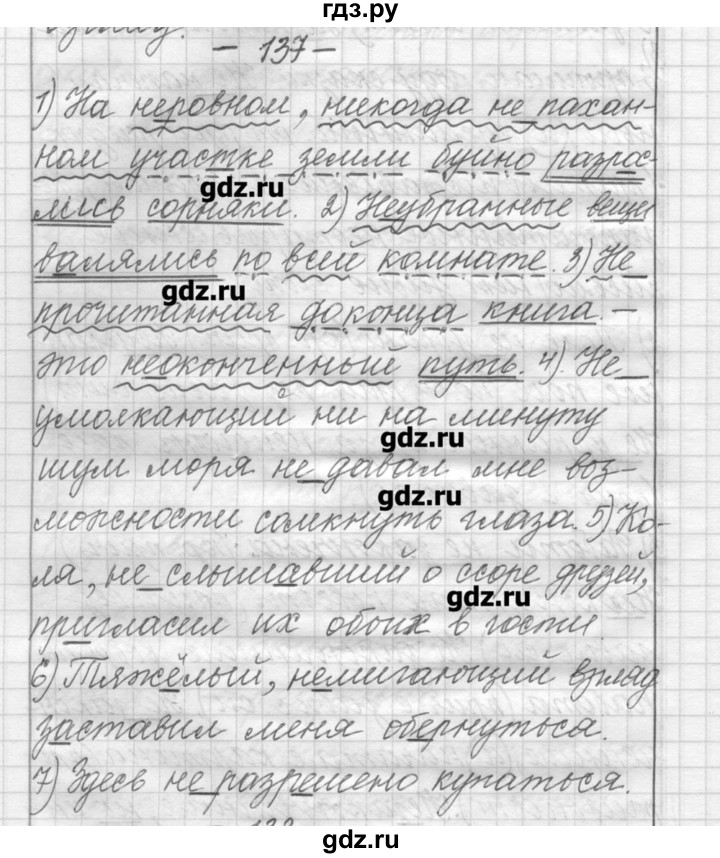 гдз.ру
– 137 –
1) На неровном, никогда не пахан-
ном участке земли буйно разрос-
gdz.ru
лись сорняки. 2) Неубранные вещи
валялись по всей комнате. 3) Не
gdz.ru
прочитанная до конца книга –
это неоконченный путь. 4). Не
умолкающий ни на минуту
gdz.ru
шум моря не давал мне воз-
gdz.ru
можности сомкнуть глаза. 5) Ко-
ля, не слышавший о ссоре друзей,
gdz.ru
пригласил их обоих в гости.
6) Тяжёлый, немигающий взгляд
заставил меня обернуться.
7) Здесь не разрешено купаться.
gdz.ru